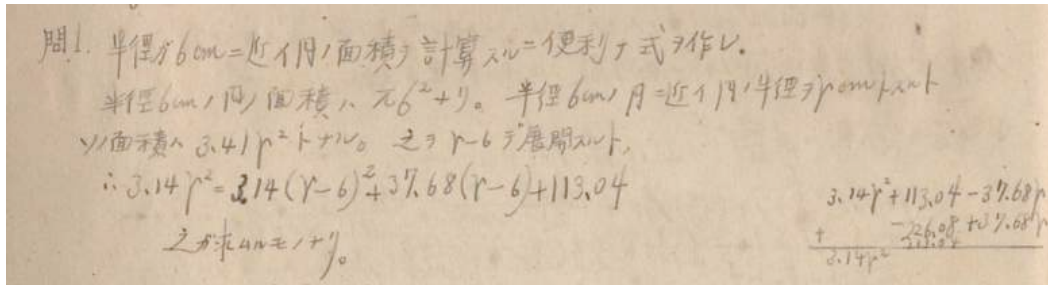 問1. 半徑ガ6cmニ近イ円ノ面積ヲ計算スルニ便利ナ式ヲ作レ。
半徑6cmノ円ノ面積ハ π6²ナリ。 半徑6cmノ円ニ近イ円ノ半徑ヲrcmトスルト
ソノ面積ハ 3.41r²トナル。 之ヲ r-6デ展開スルト,
∴ 3.14r²=3.14(r-6)²+37.68(r-6)+113.04
之ガ求ムルモノナリ。
3.14r²+113.04-37.68r
+ -226.08+37.68r
3.14r²